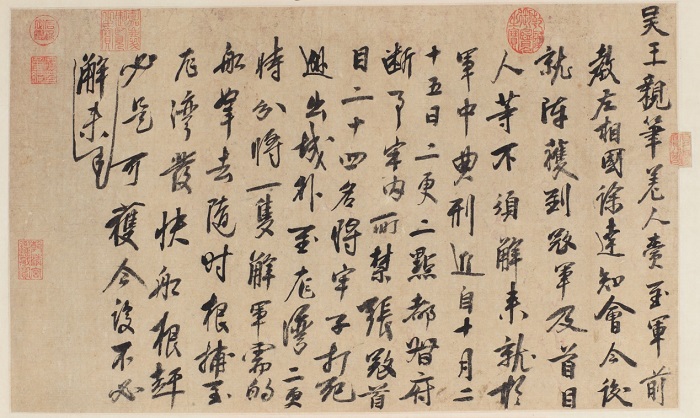 吴王親筆差人賫至軍前
教左相國徐達知會今後
就陣獲到寇軍及首目
人等不須解来就於
軍中典刑近自十月二
十五日二更二點都督府
斷事牢內所禁張寇首
目二十四名將牢子打死
越出城外至龍灣二更
時分將一隻解軍需的
船拿去隨時根捕至
龍灣發快船根趕
必是可獲今後不必
解来